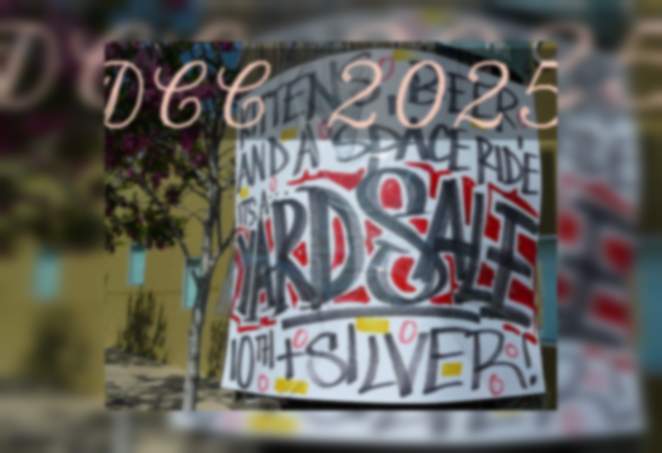 DCC 2025
KITTENS, BEER,
AND A SPACE RIDE
IT'S A
YARD SALE
10TH + SILVER!